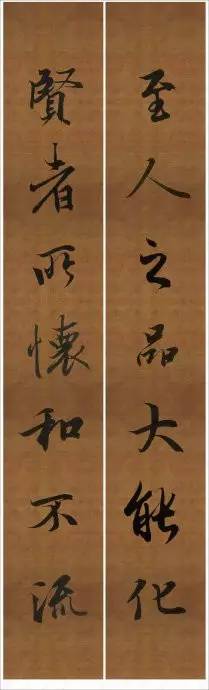 至人之品大能化
賢者所懷和不流